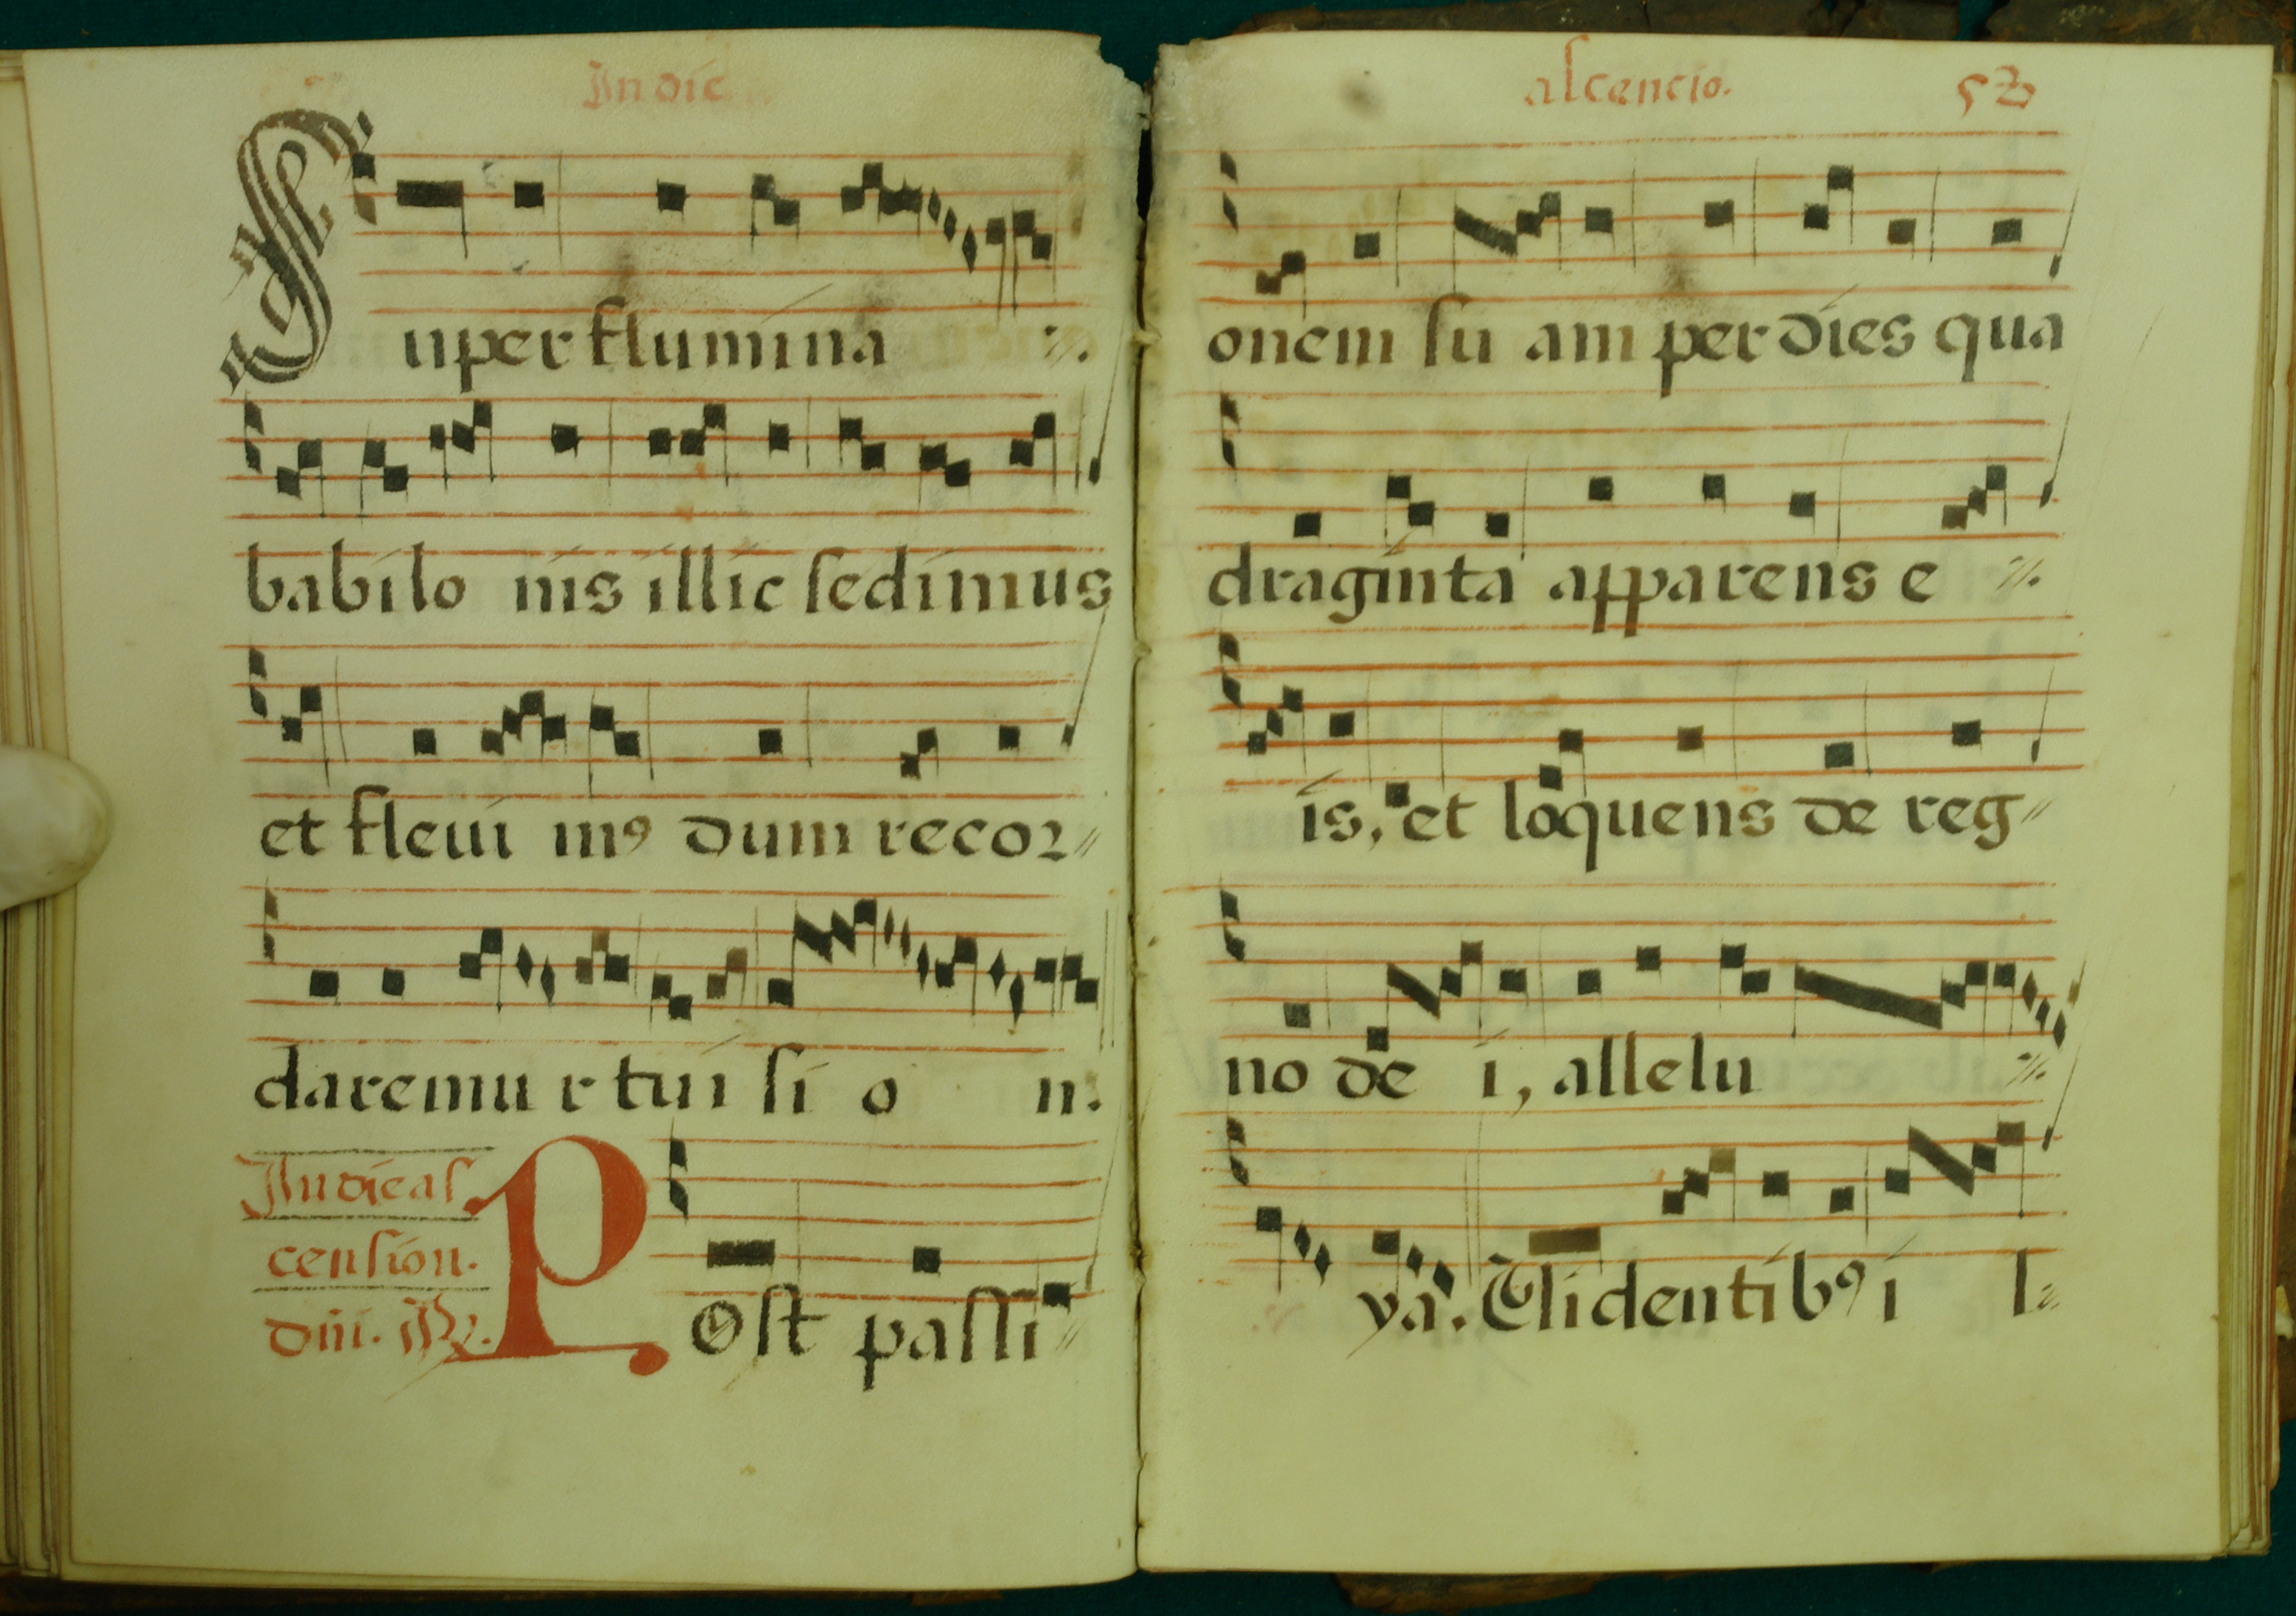 In die
Super flumina
babilo nis illic sedimus
et fleui mꝰ dum recor
daremu r tui si o n.
In die as
cension.
dñi. ℟.
Post passi
ascencio. 52
onem su am per dies qua
draginta apparens e
is, et loquens de reg
no de i, allelu
ya. Videntibꝰ i l